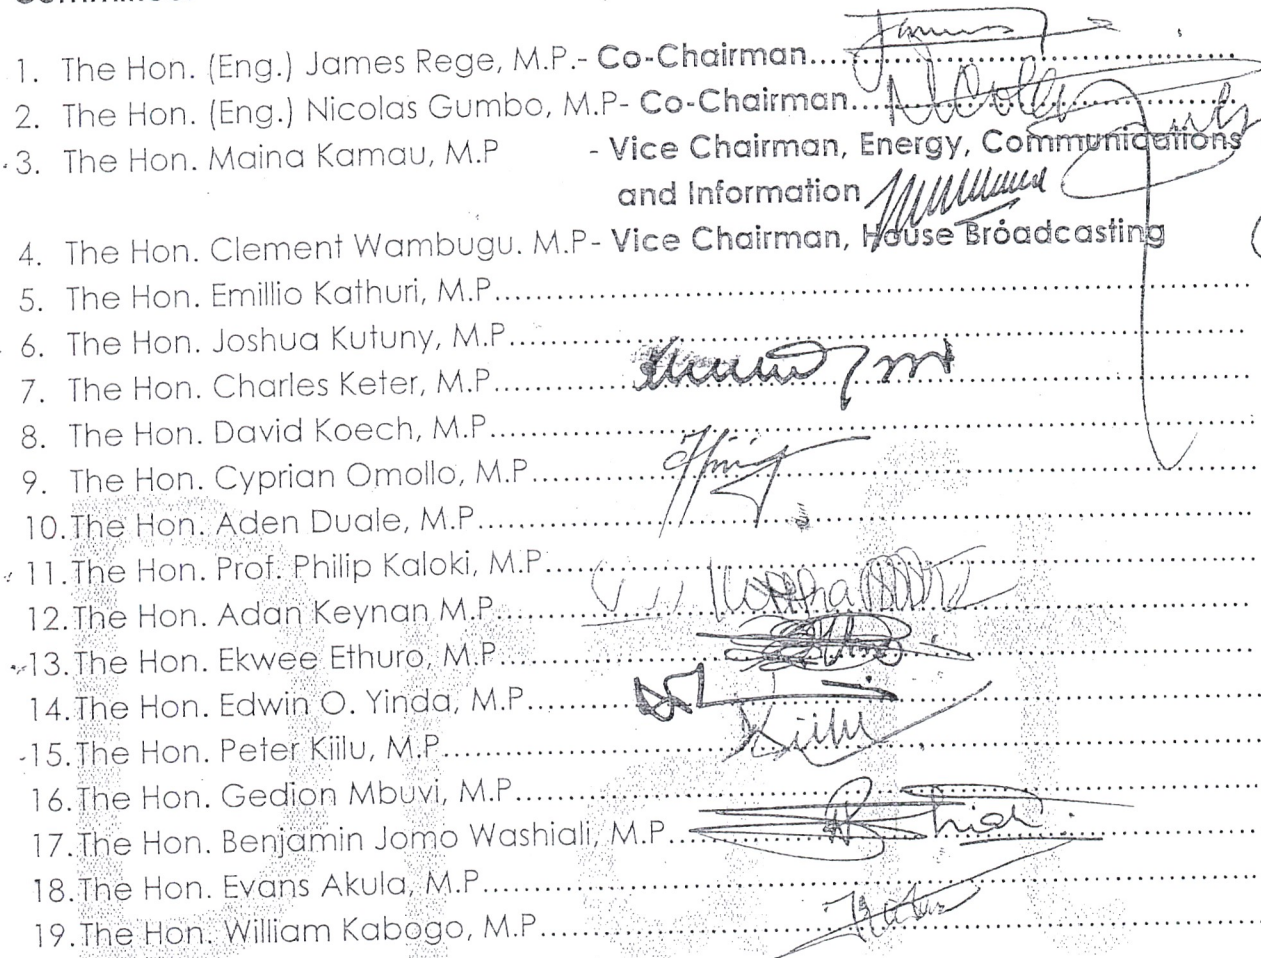 1. The Hon. (Eng.) James Rege, M.P.- Co-Chairman....
2. The Hon. (Eng.) Nicolas Gumbo, M.P- Co-Chairman....
3. The Hon. Maina Kamau, M.P - Vice Chairman, Energy, Communications
and Information
4. The Hon. Clement Wambugu. M.P- Vice Chairman, House Broadcasting
5. The Hon. Emillio Kathuri, M.P....
6. The Hon. Joshua Kutuny, M.P....
7. The Hon. Charles Keter, M.P....
8. The Hon. David Koech, M.P....
9. The Hon. Cyprian Omollo, M.P....
10. The Hon. Aden Duale, M.P....
11. The Hon. Prof. Philip Kaloki, M.P....
12. The Hon. Adan Keynan M.P....
13. The Hon. Ekwee Ethuro, M.P....
14. The Hon. Edwin O. Yinda, M.P....
15. The Hon. Peter Kiilu, M.P.... Kiilu
16. The Hon. Gedion Mbuvi, M.P....
17. The Hon. Benjamin Jomo Washiali, M.P....
18. The Hon. Evans Akula, M.P....
19. The Hon. William Kabogo, M.P....